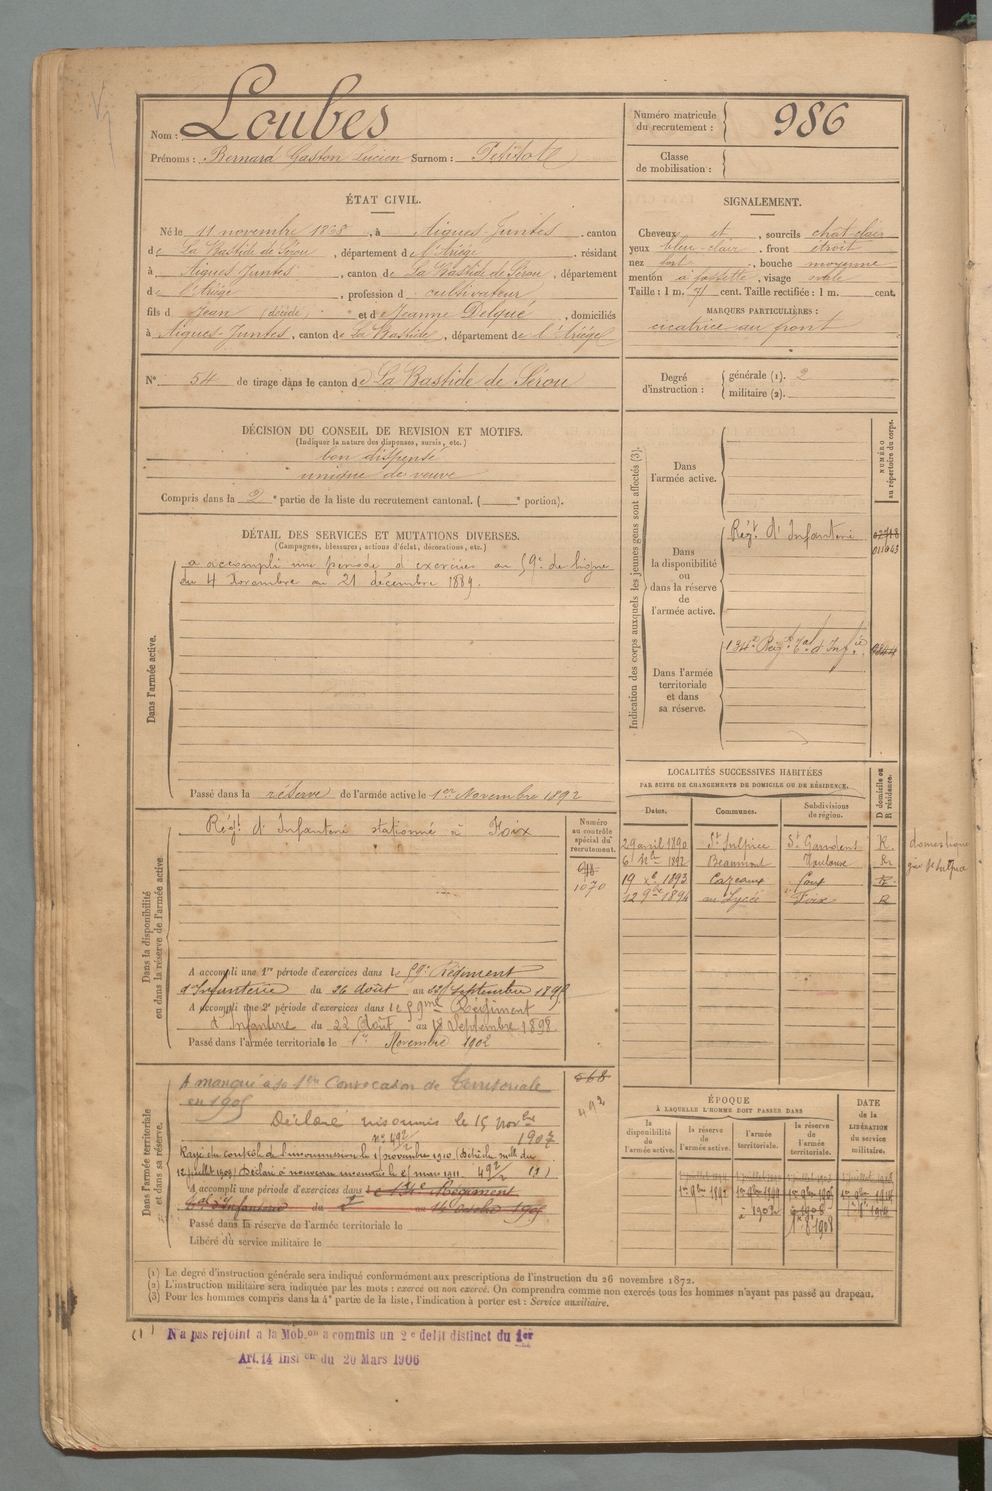 Nom : Loubes
Prénoms : Bernard Gaston Lucien Surnom : Petitote
Numéro matricule du recrutement : 986
Classe de mobilisation :
ÉTAT CIVIL.
Né le 11 novembre 1868, à Aigues-Juntes, canton
de La Bastide de Sérou, département de l'Ariège, résidant
à Aigues-Juntes, canton de La Bastide de Sérou, département
de l'Ariège, profession d cultivateur
fils d Jean (décédé) et de Jeanne Delqué, domiciliés
à Aigues-Juntes, canton de La Bastide, département de l'Ariège
N° 54 de tirage dans le canton de La Bastide de Sérou
SIGNALEMENT.
Cheveux et, sourcils chat-clair
yeux bleu-clair, front étroit
nez fort, bouche moyenne
menton à fossette, visage ovale
Taille : 1 m. 71 cent. Taille rectifiée : 1 m. cent.
MARQUES PARTICULIÈRES :
cicatrice au front
Degré d'instruction :
générale (1). 2
militaire (2).
DÉCISION DU CONSEIL DE REVISION ET MOTIFS.
(Indiquer la nature des dispenses, sursis, etc.)
bon dispensé
unique de veuve
Compris dans la 2e partie de la liste du recrutement cantonal. ( e portion).
DÉTAIL DES SERVICES ET MUTATIONS DIVERSES.
(Campagnes, blessures, actions d'éclat, décorations, etc.)
Dans l'armée active.
a accompli une période d'exercices au 59e de ligne
du 4 Novembre au 21 décembre 1889.
Passé dans la réserve de l'armée active le 1er Novembre 1892
Indication des corps auxquels les jeunes gens sont affectés (3).
NUMÉRO au répertoire du corps.
Dans l'armée active.
Dans la disponibilité ou dans la réserve de l'armée active.
Régt d'Infanterie
Dans l'armée territoriale et dans sa réserve.
134e Régt Tal d'Infie
LOCALITÉS SUCCESSIVES HABITÉES
PAR SUITE DE CHANGEMENTS DE DOMICILE OU DE RÉSIDENCE.
Dates. Communes. Subdivisions de région. D domicile ou R résidence.
29 avril 1890 St Sulpice St Gaudens R.
6 1892 Beaumont Toulouse R
19 Xe 1893 Cazeaux Foix R
12 9bre 1894 au Lycée Foix R
Dans la disponibilité ou dans la réserve de l'armée active.
Régt d'Infanterie stationné à Foix
Numéro au contrôle spécial du recrutement.
1070
A accompli une 1re période d'exercices dans le 59e Régiment
d'Infanterie du 26 Août au Septembre 1895
A accompli une 2e période d'exercices dans le 59me Régiment
d'Infanterie du 22 Août au 18 Septembre 1898
Passé dans l'armée territoriale le 1er Novembre 1902
Dans l'armée territoriale et dans sa réserve.
A manqué à sa 1ère Convocation de Territoriale
en 1905
568
492
Déclaré insoumis le 15 Novbre
1907
n° 492/2
Rayé du contrôle de l'insoumission le 1 novembre 1910 (Dépêche mlle du
12 juillet 1909) Déclaré à nouveau insoumis le mars 1911 492/2 (1)
A accompli une période d'exercices dans le 134e Régiment
Tal d'Infanterie du 2 au 14 Octobre 1905
Passé dans la réserve de l'armée territoriale le
Libéré du service militaire le
ÉPOQUE
À LAQUELLE L'HOMME DOIT PASSER DANS
la disponibilité de l'armée active. la réserve de l'armée active. l'armée territoriale. la réserve de l'armée territoriale.
DATE de la LIBÉRATION du service militaire.
(1) Le degré d'instruction générale sera indiqué conformément aux prescriptions de l'instruction du 26 novembre 1872.
(2) L'instruction militaire sera indiquée par les mots : exercé ou non exercé. On comprendra comme non exercés tous les hommes n'ayant pas passé au drapeau.
(3) Pour les hommes compris dans la 4e partie de la liste, l'indication à porter est : Service auxiliaire.
(1) N'a pas rejoint à la Mob.on a commis un 2e delit distinct du 1er
Art.14 Inston du 20 Mars 1906